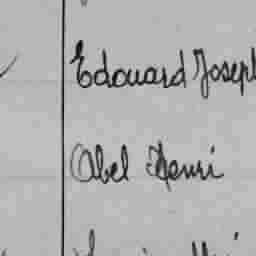 Edouard Joseph
Abel Henri